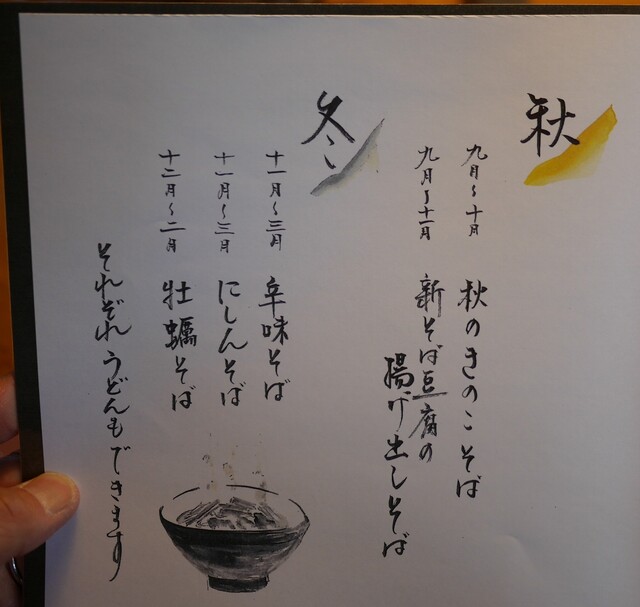 秋
九月〜十月 秋のきのこそば
九月〜十一月 新そば豆腐の
揚げ出しそば
冬
十一月〜三月 辛味そば
十一月〜三月 にしんそば
十二月〜二月 牡蠣そば
それぞれうどんもできます